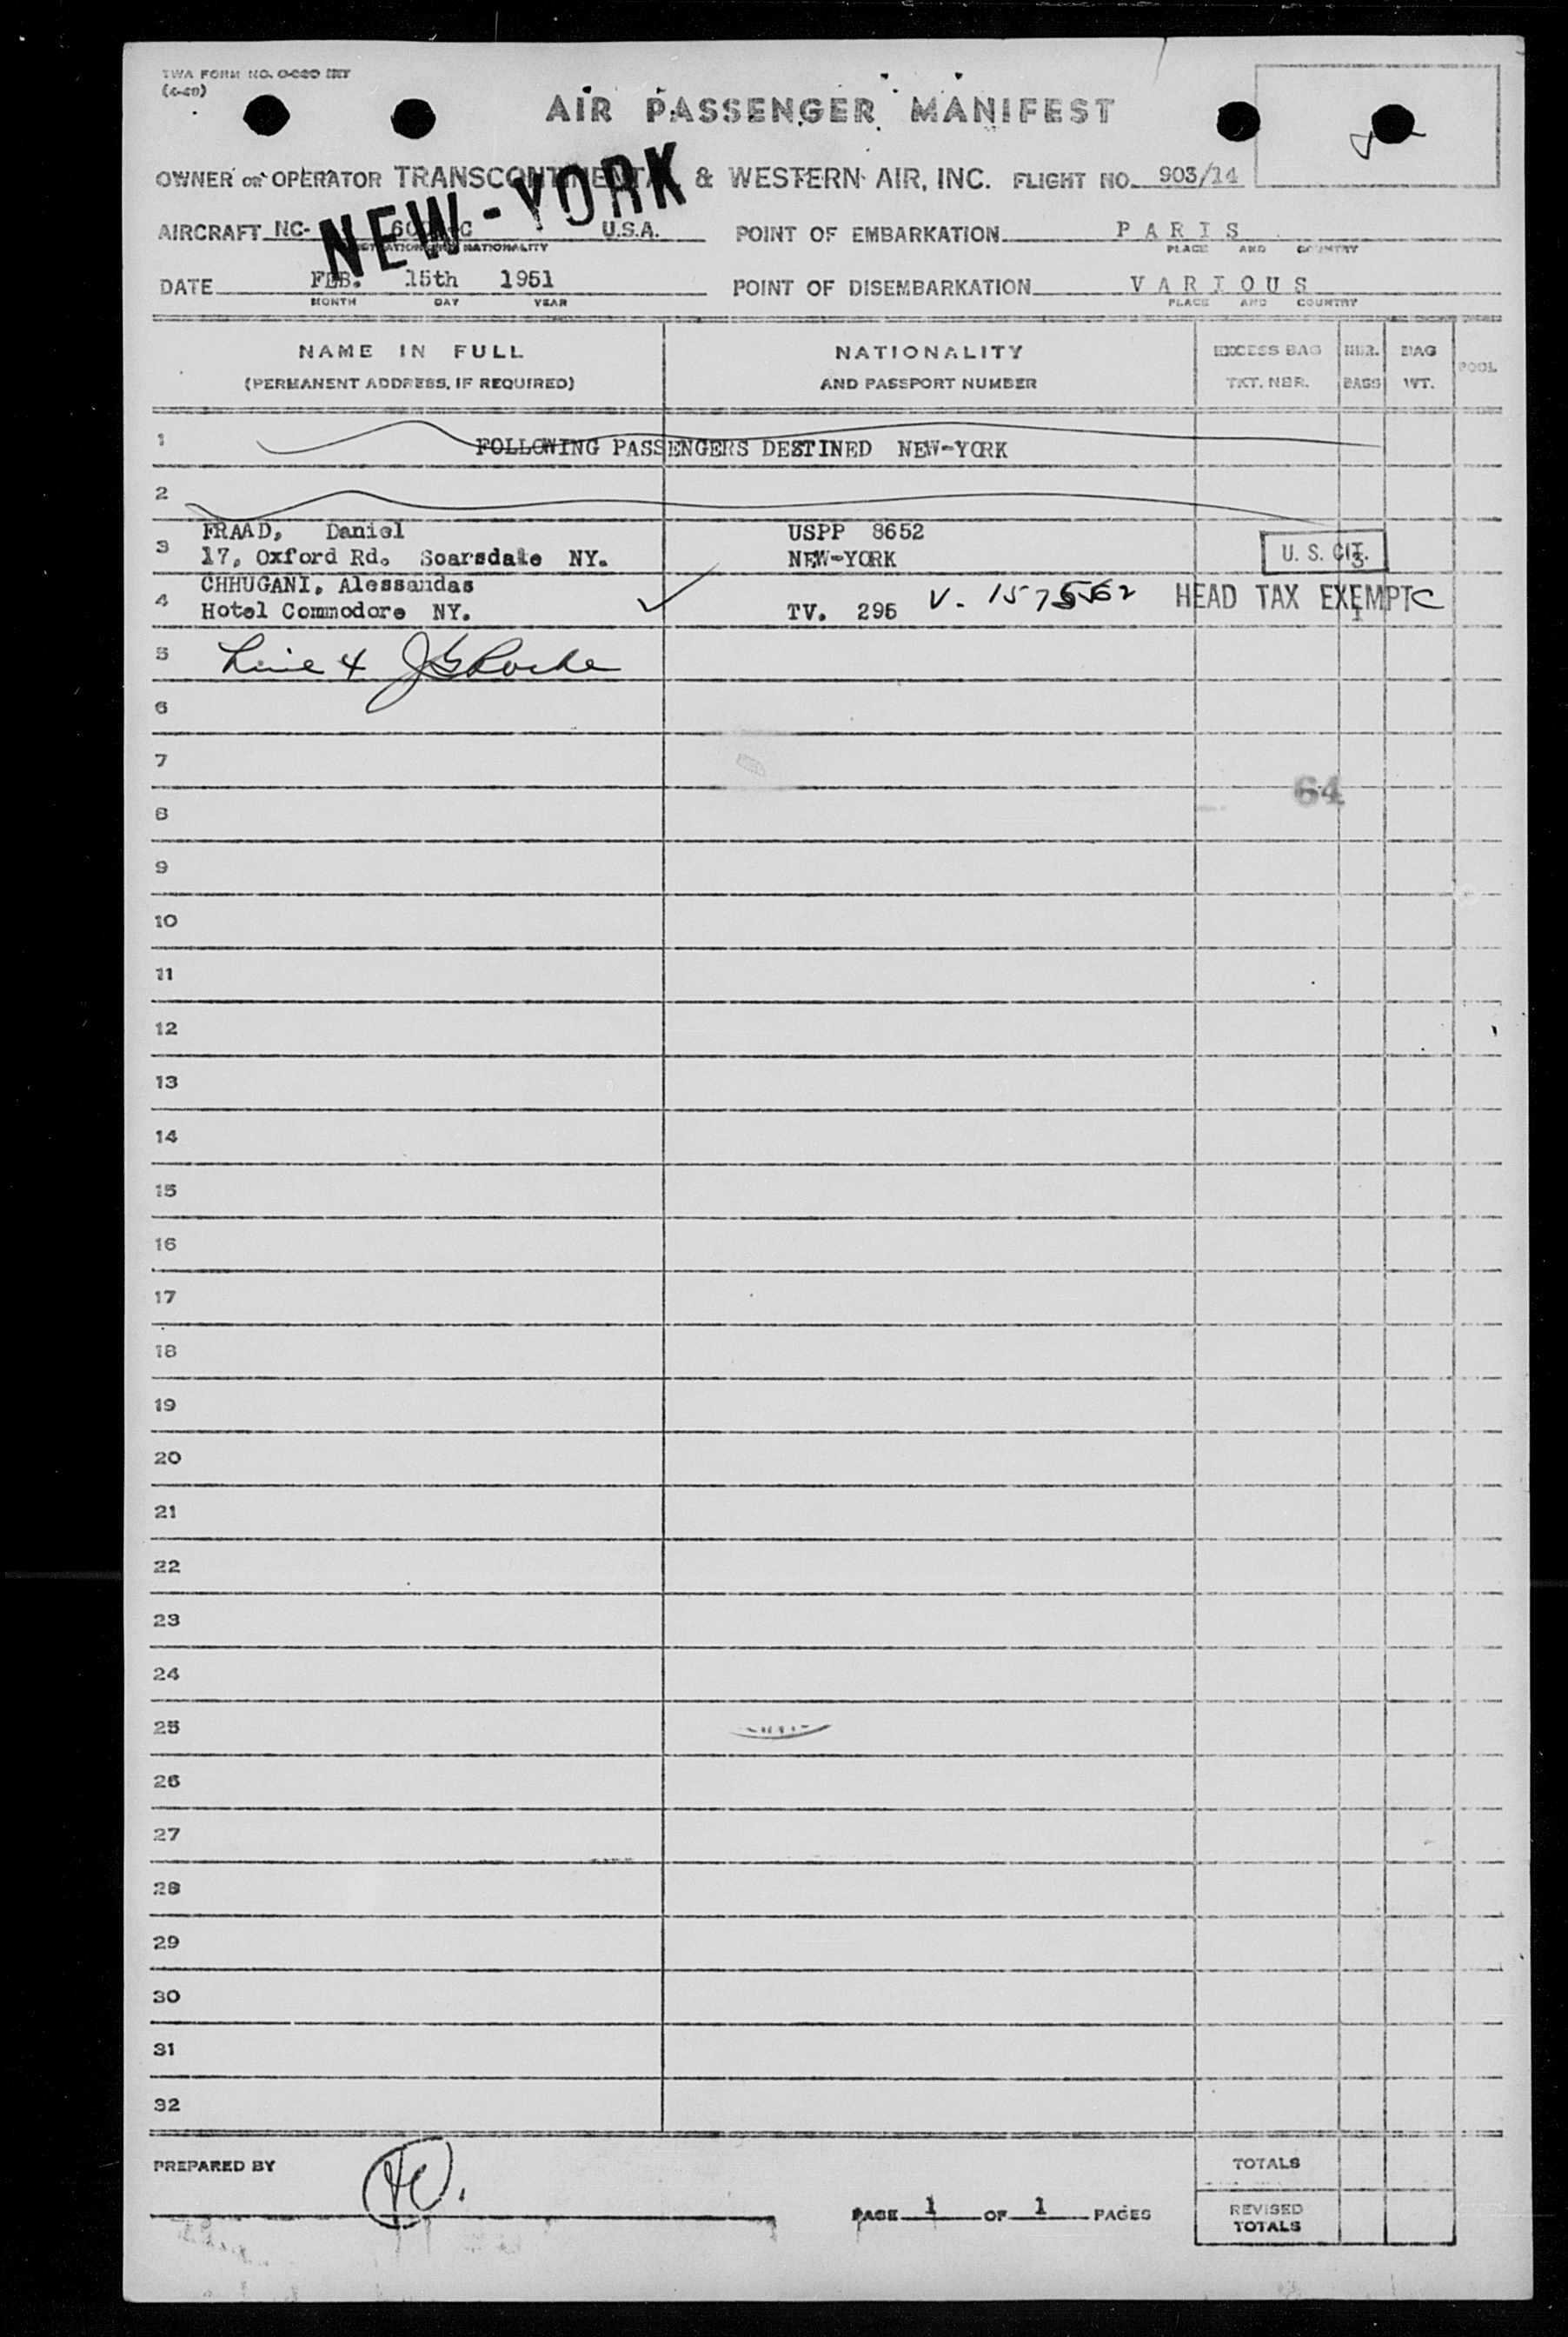 TWA FORM NO.
AIR PASSENGER MANIFEST
OWNER OR OPERATOR TRANSCONTINENTAL & WESTERN AIR, INC. FLIGHT NO. 903/14
NEW-YORK
AIRCRAFT NC- U.S.A. POINT OF EMBARKATION PARIS
NATIONALITY PLACE AND COUNTRY
DATE FEB. 15th 1951 POINT OF DISEMBARKATION VARIOUS
MONTH DAY YEAR PLACE AND COUNTRY
NAME IN FULL NATIONALITY EXCESS BAG NBR. BAG POOL
(PERMANENT ADDRESS, IF REQUIRED) AND PASSPORT NUMBER TKT. NBR. BAGS WT.
1 FOLLOWING PASSENGERS DESTINED NEW-YORK
2
FRAAD, Daniel USPP 8652
3 17, Oxford Rd. Scarsdale NY. NEW-YORK U. S. CIT.
CHHUGANI, Alessandas
4 Hotel Commodore NY. TV. 295 V. 1575562 HEAD TAX EXEMPT C
5 Line 4 JG Roche
6
7
64
8
9
10
11
12
13
14
15
16
17
18
19
20
21
22
23
24
25
26
27
28
29
30
31
32
PREPARED BY TOTALS
PAGE 1 OF 1 PAGES REVISED
TOTALS